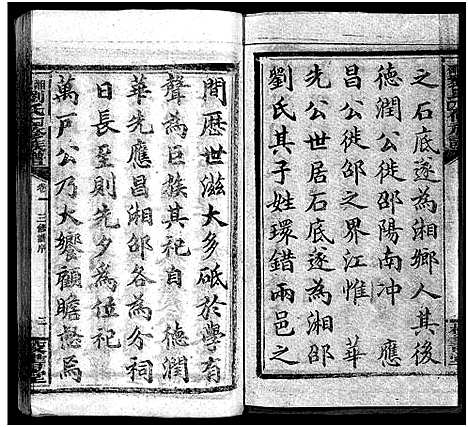 之石底遂為湘鄉人其後
德潤公徙邵陽南冲　應
昌公徙邵之界江惟　華
先公世居石底遂為湘邵
劉氏其子姓環錯兩邑之
間歷世滋大多砥於學有
聲為巨族其祀自　德潤
華先應昌湘邵各為分祠
日長至則先夕為位祀
萬戸公乃大饗顧瞻愀焉
卷一　三修譜序　二